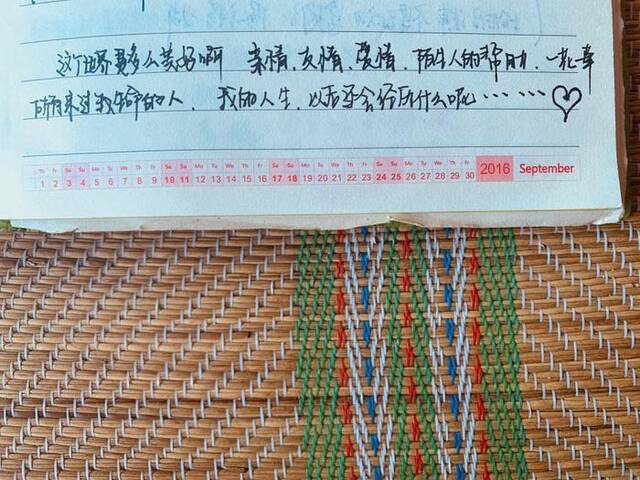 这个世界是多么美好啊 亲情、友情、爱情、陌生人的帮助、一花一草
所有来过我生命的人、我的人生，以后还会经历什么呢……♡
Th Fr Sa Su Mo Tu We Th Fr Sa Su Mo Tu We Th Fr Sa Su Mo Tu We Th Fr Sa Su Mo Tu We Th Fr
1 2 3 4 5 6 7 8 9 10 11 12 13 14 15 16 17 18 19 20 21 22 23 24 25 26 27 28 29 30 2016 September